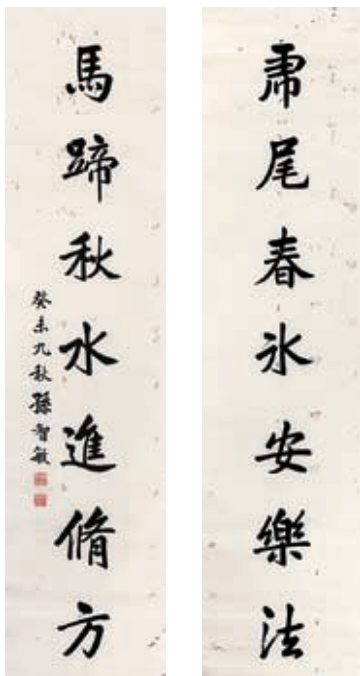 虎尾春氷安樂法
馬蹄秋水進脩方
癸未九秋孫智敏